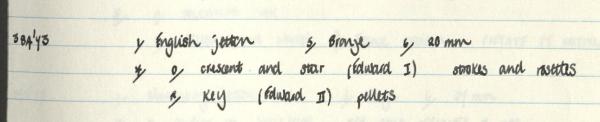 3BA'Y3 1/ English jetton 5/ Bronze 6/ 20 mm
7/ O/ crescent and star (Edward I) strokes and rosettes
R/ Key (Edward II) pellets